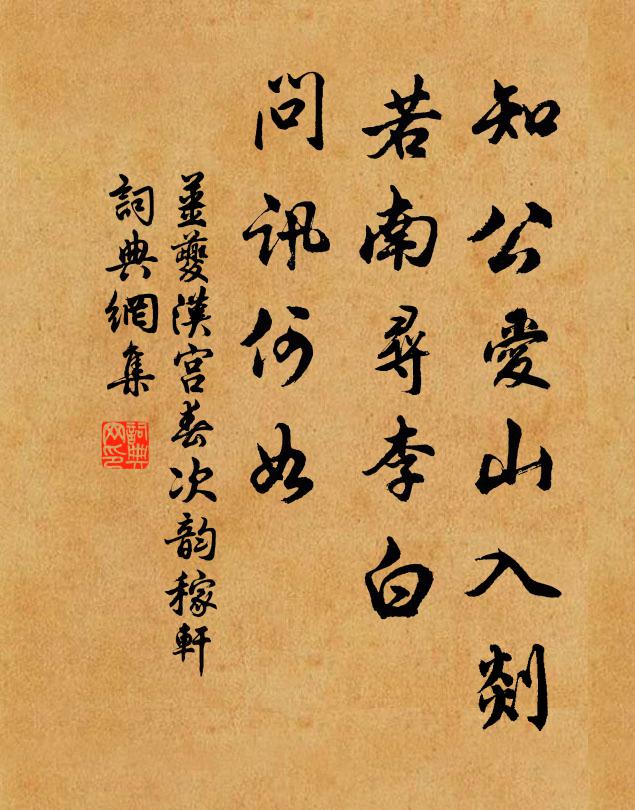 知公愛山入剡
若南尋李白
問訊何如
姜夔漢宮春次韵稼軒
詞典網集
詞典
网印